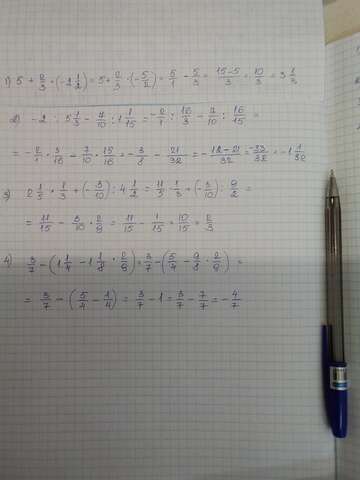 1) 5 + 2/3 · (-2 1/2) = 5 + 2/3 · (-5/2) = 5/1 - 5/3 = 15-5/3 = 10/3 = 3 1/3
2) -2 : 5 1/3 - 7/10 : 1 1/15 = -2/1 : 16/3 - 7/10 : 16/15 =
= -2/1 · 3/16 - 7/10 · 15/16 = -3/8 - 21/32 = -12-21/32 = -33/32 = -1 1/32
3) 2 1/5 · 1/3 + (-3/10) : 4 1/2 = 11/5 · 1/3 + (-3/10) : 9/2 =
= 11/15 - 3/10 · 2/9 = 11/15 - 1/15 = 10/15 = 2/3
4) 3/7 - (1 1/4 - 1 1/8 · 2/9) = 3/7 - (5/4 - 9/8 · 2/9) =
= 3/7 - (5/4 - 1/4) = 3/7 - 1 = 3/7 - 7/7 = -4/7